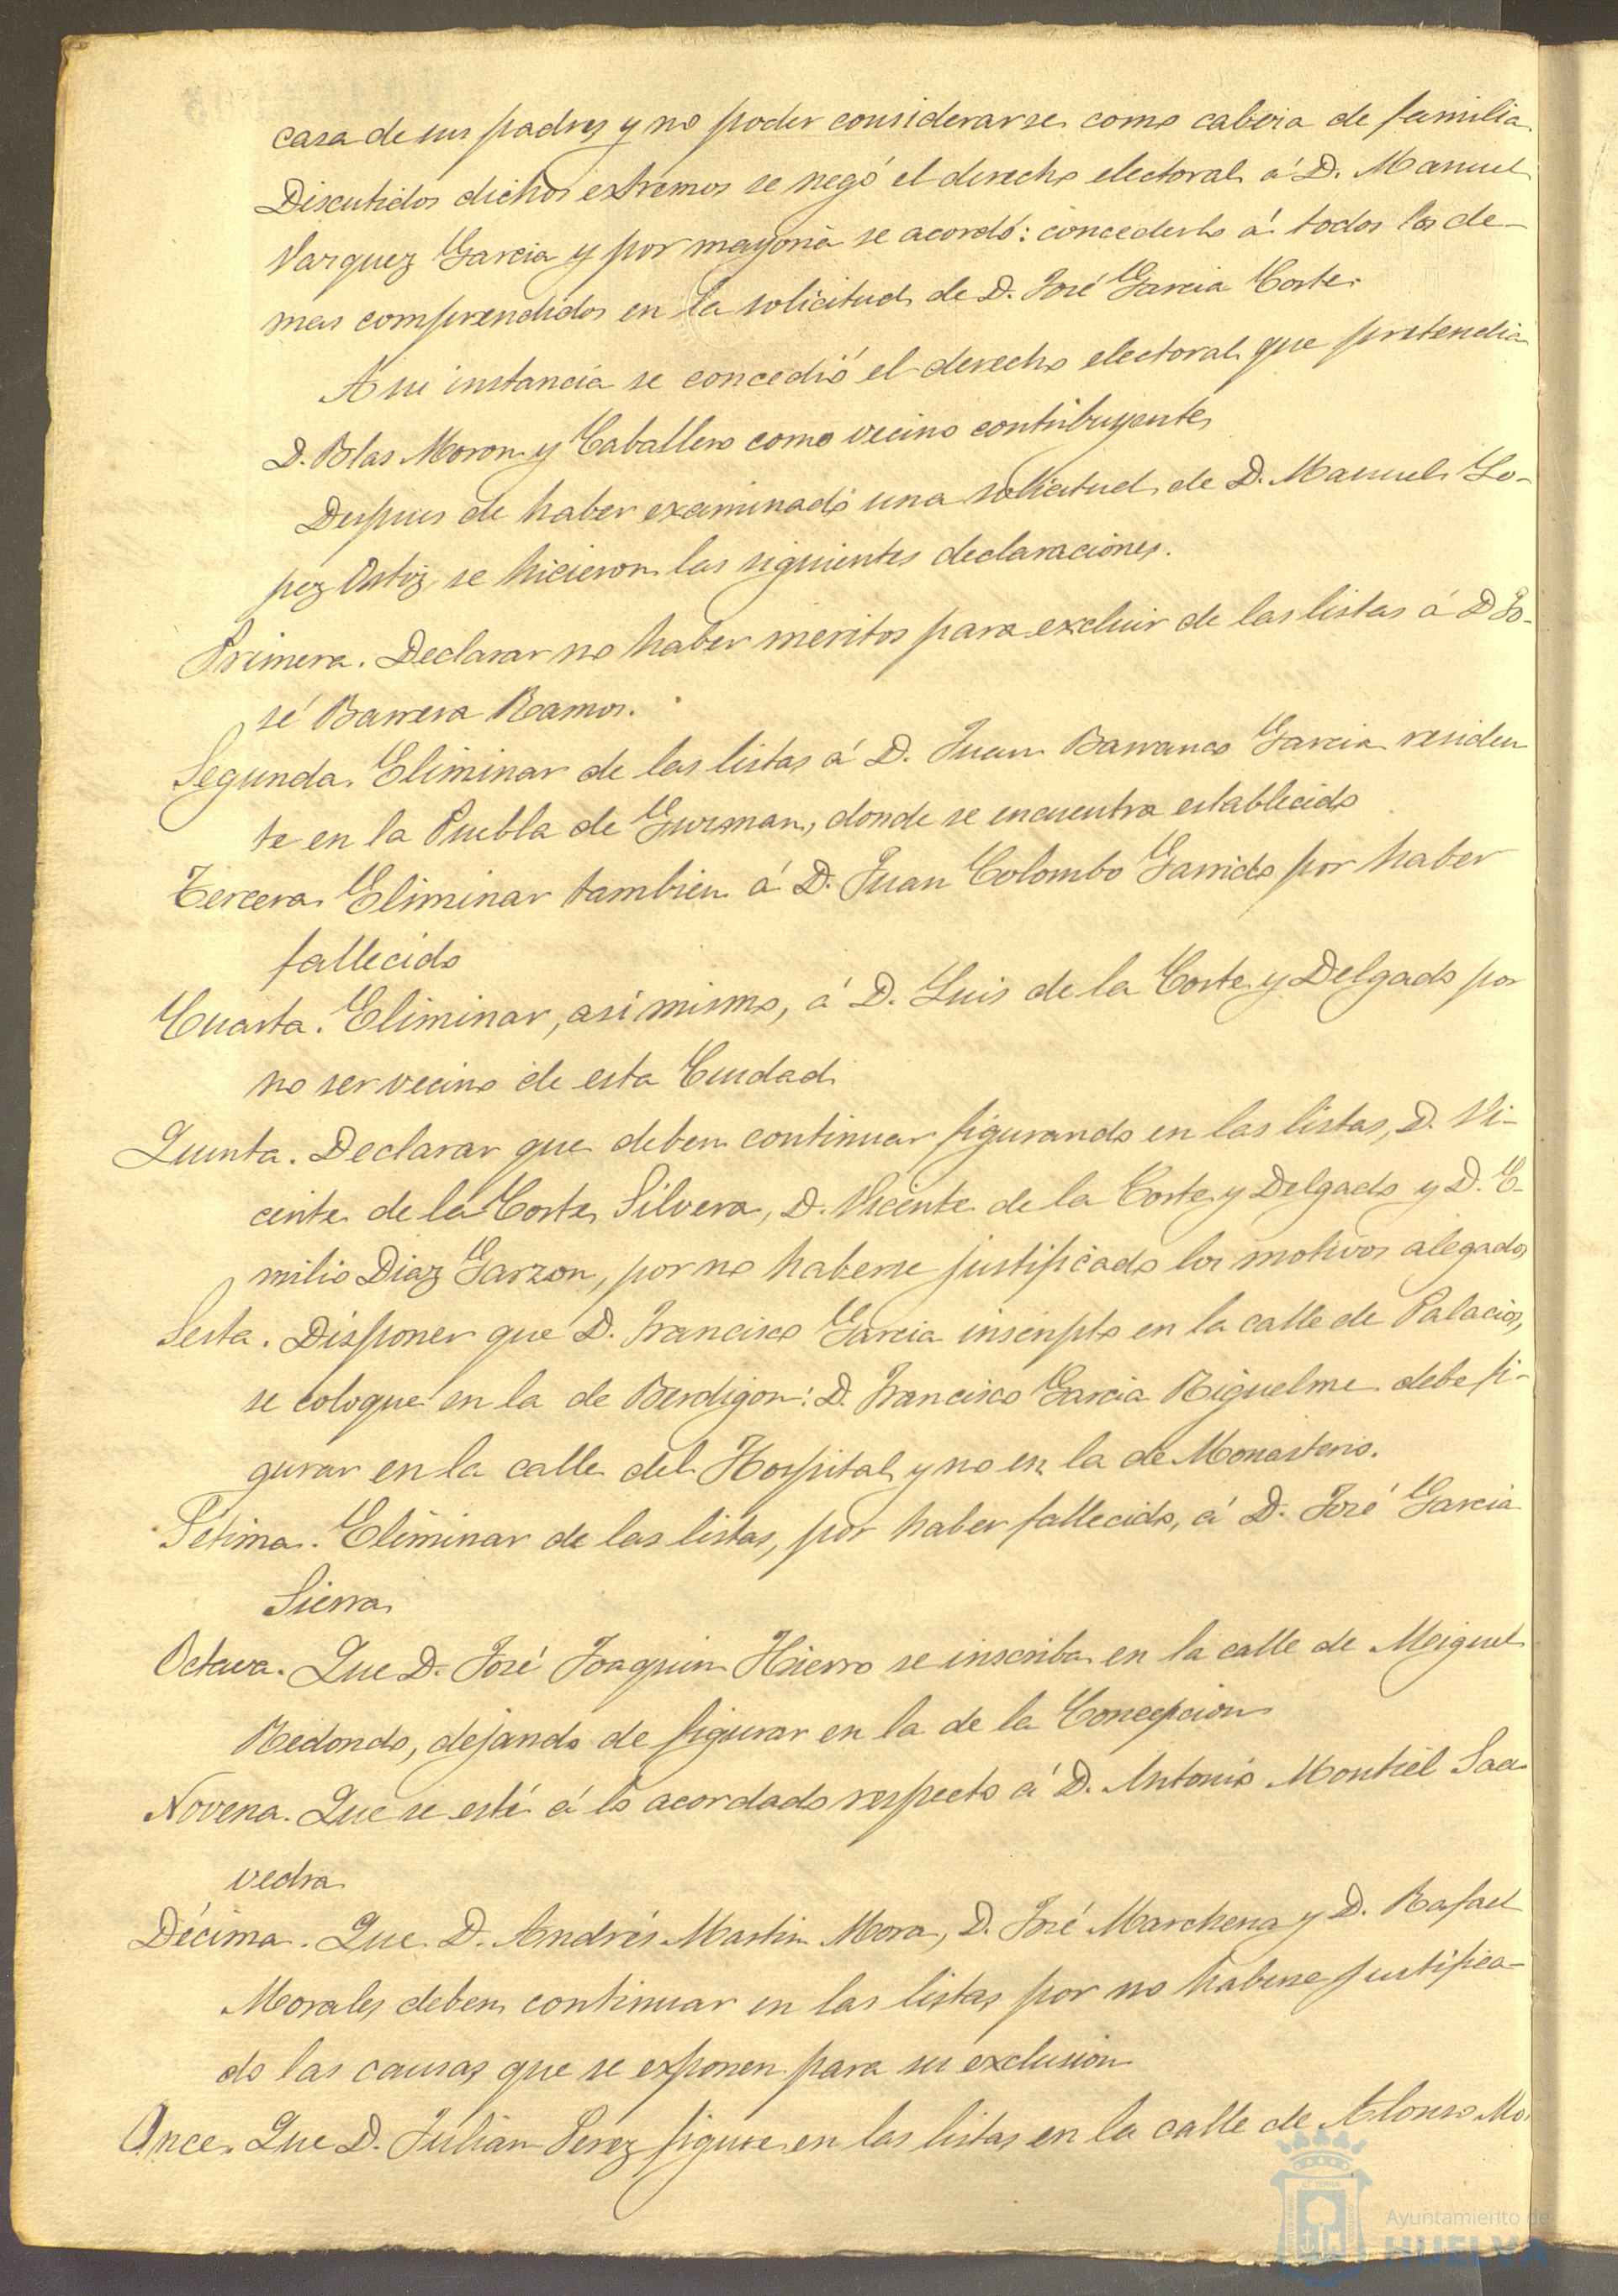 casa de sus padres y no poder considerarse como cabeza de familia
Discutidos dichos extremos se negó el derecho electoral á D. Manuel
Vazquez Garcia y por mayoria se acordó: concederlo á todos los de-
mas comprendidos en la solicitud de D. José Garcia Corte.
A su instancia se concedió el derecho electoral que pretendia
D. Blas Moron y Caballero como vecino contribuyente
Despues de haber examinado una solicitud de D. Manuel Lo-
pez Ortiz se hicieron las siguientes declaraciones.
Primera. Declarar no haber meritos para excluir de las listas á D Jo-
sé Barrera Ramos.
Segunda. Eliminar de las listas á D. Juan Barranco Garcia residen
te en la Puebla de Guzman, donde se encuentra establecido
Tercera. Eliminar tambien á D. Juan Colombo Garrido por haber
fallecido
Cuarta. Eliminar, asi mismo, á D. Luis de la Corte y Delgado por
no ser vecino de esta Ciudad
Quinta. Declarar que deben continuar figurando en las listas, D. Vi-
cente de la Corte Silvera, D. Vicente de la Corte y Delgado y D. E-
milio Diaz Garzon, por no haberse justificado los motivos alegados
Sesta. Disponer que D. Francisco Garcia inscripto en la calle de Palacios,
se coloque en la de Berdigon: D. Francisco Garcia Riguelme debe fi-
gurar en la calle del Hospital y no en la de Monasterio.
Sétima. Eliminar de las listas, por haber fallecido, á D. José Garcia
Sierra
Octava. Que D. José Joaquin Hierro se inscriba en la calle de Meiguel
Redondo, dejando de figurar en la de la Concepcion
Novena. Que se esté á lo acordado respecto á D. Antonio Montiel Saa
vedra
Décima. Que D. Andrés Martin Mora, D. José Marchena y D. Rafael
Morales deben continuar en las listas por no haberse justifica-
do las causas que se exponen para su exclusion
Once. Que D. Julian Perez figure en las listas en la calle de Alonso Mo
Ayuntamiento de
HUELVA